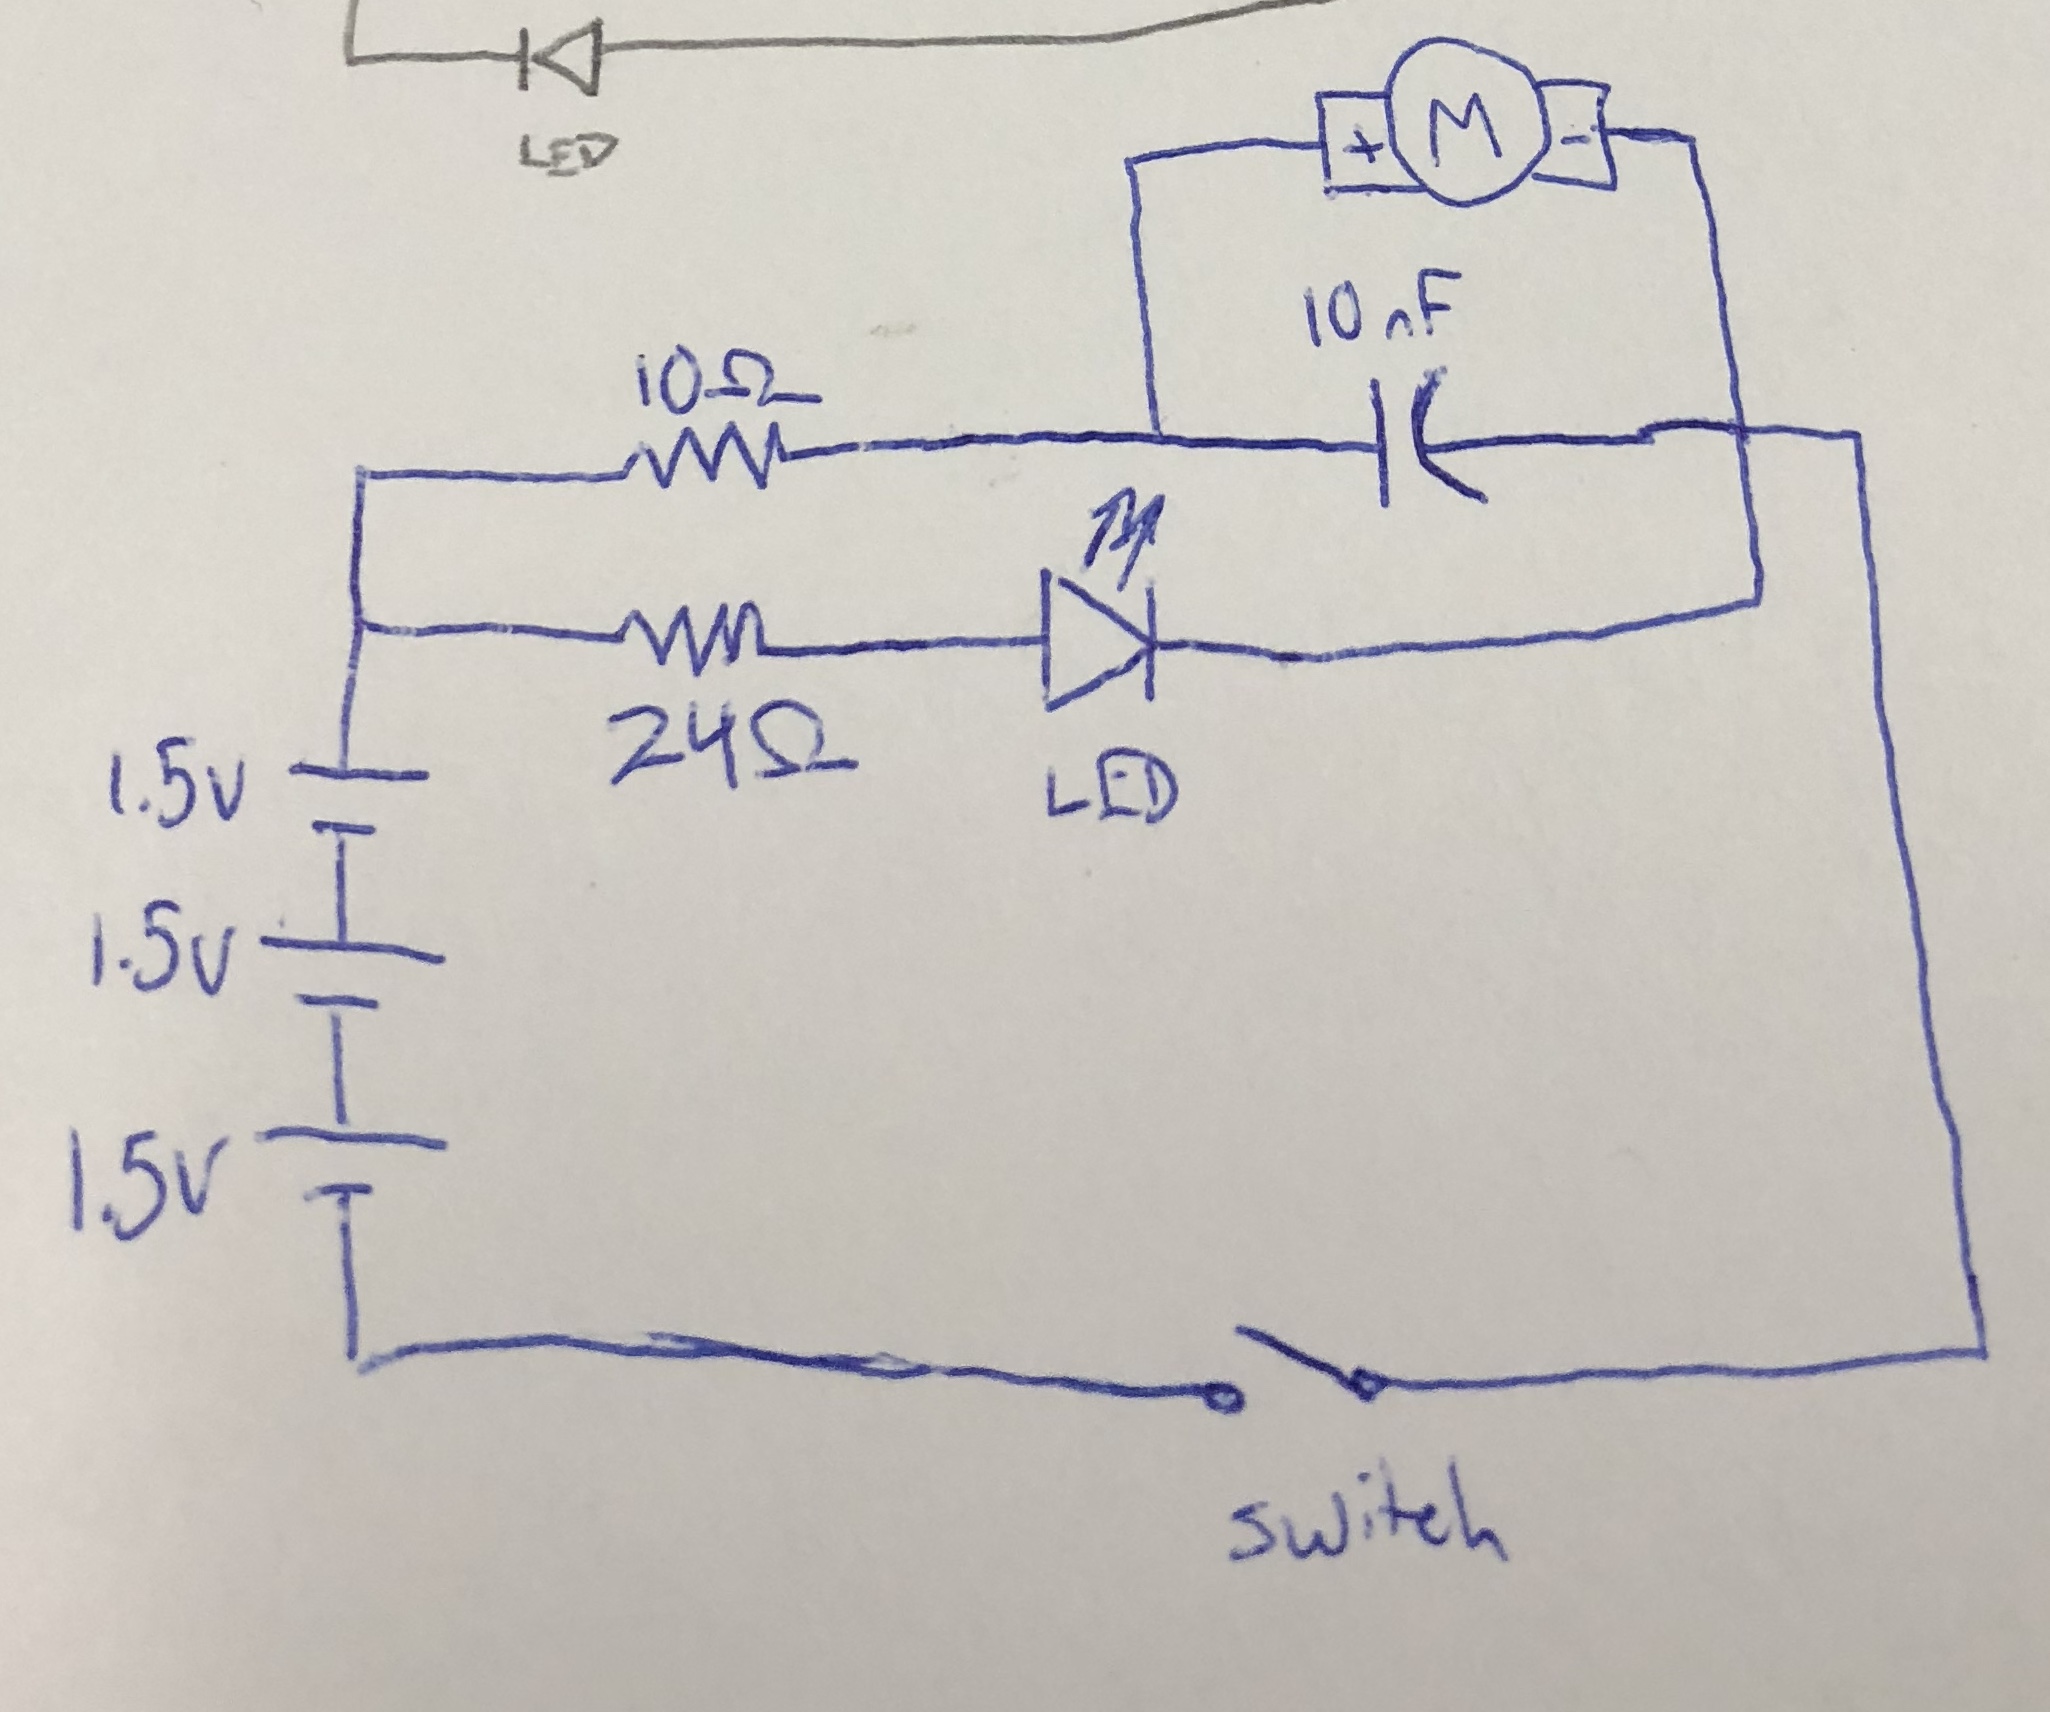 LED
+ M -
10nF
10Ω
24Ω
LED
1.5V
1.5V
1.5V
switch